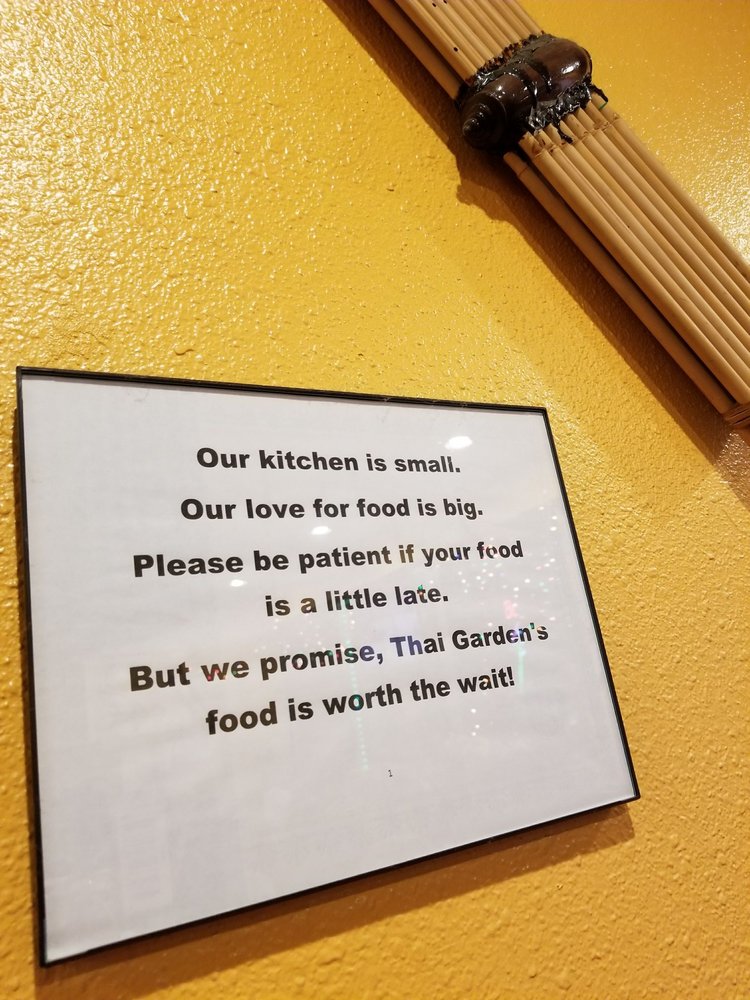 Our kitchen is small.
Our love for food is big.
Please be patient if your food
is a little late.
But we promise, Thai Garden's
food is worth the wait!
1